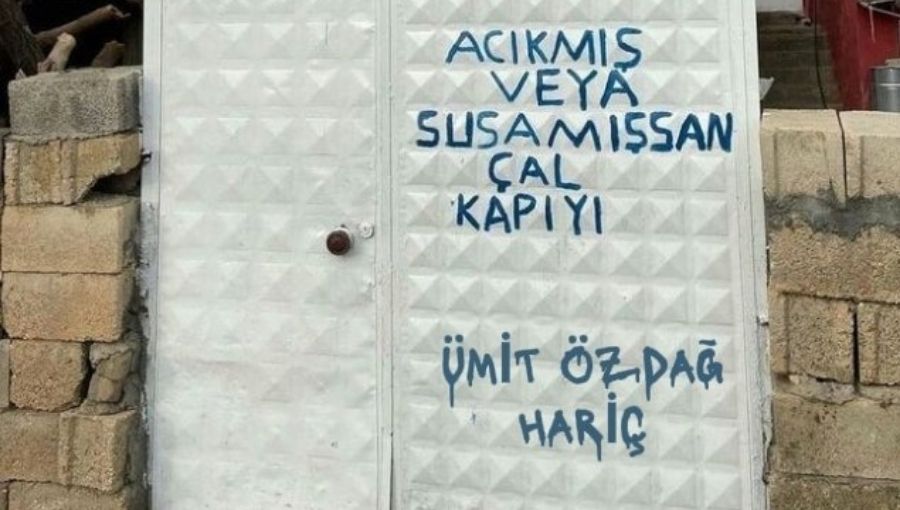 AÇIKMIŞ
VEYA
SUSAMIŞSAN
ÇAL
KAPIYI
ÜMİT ÖZDAĞ
HARİÇ